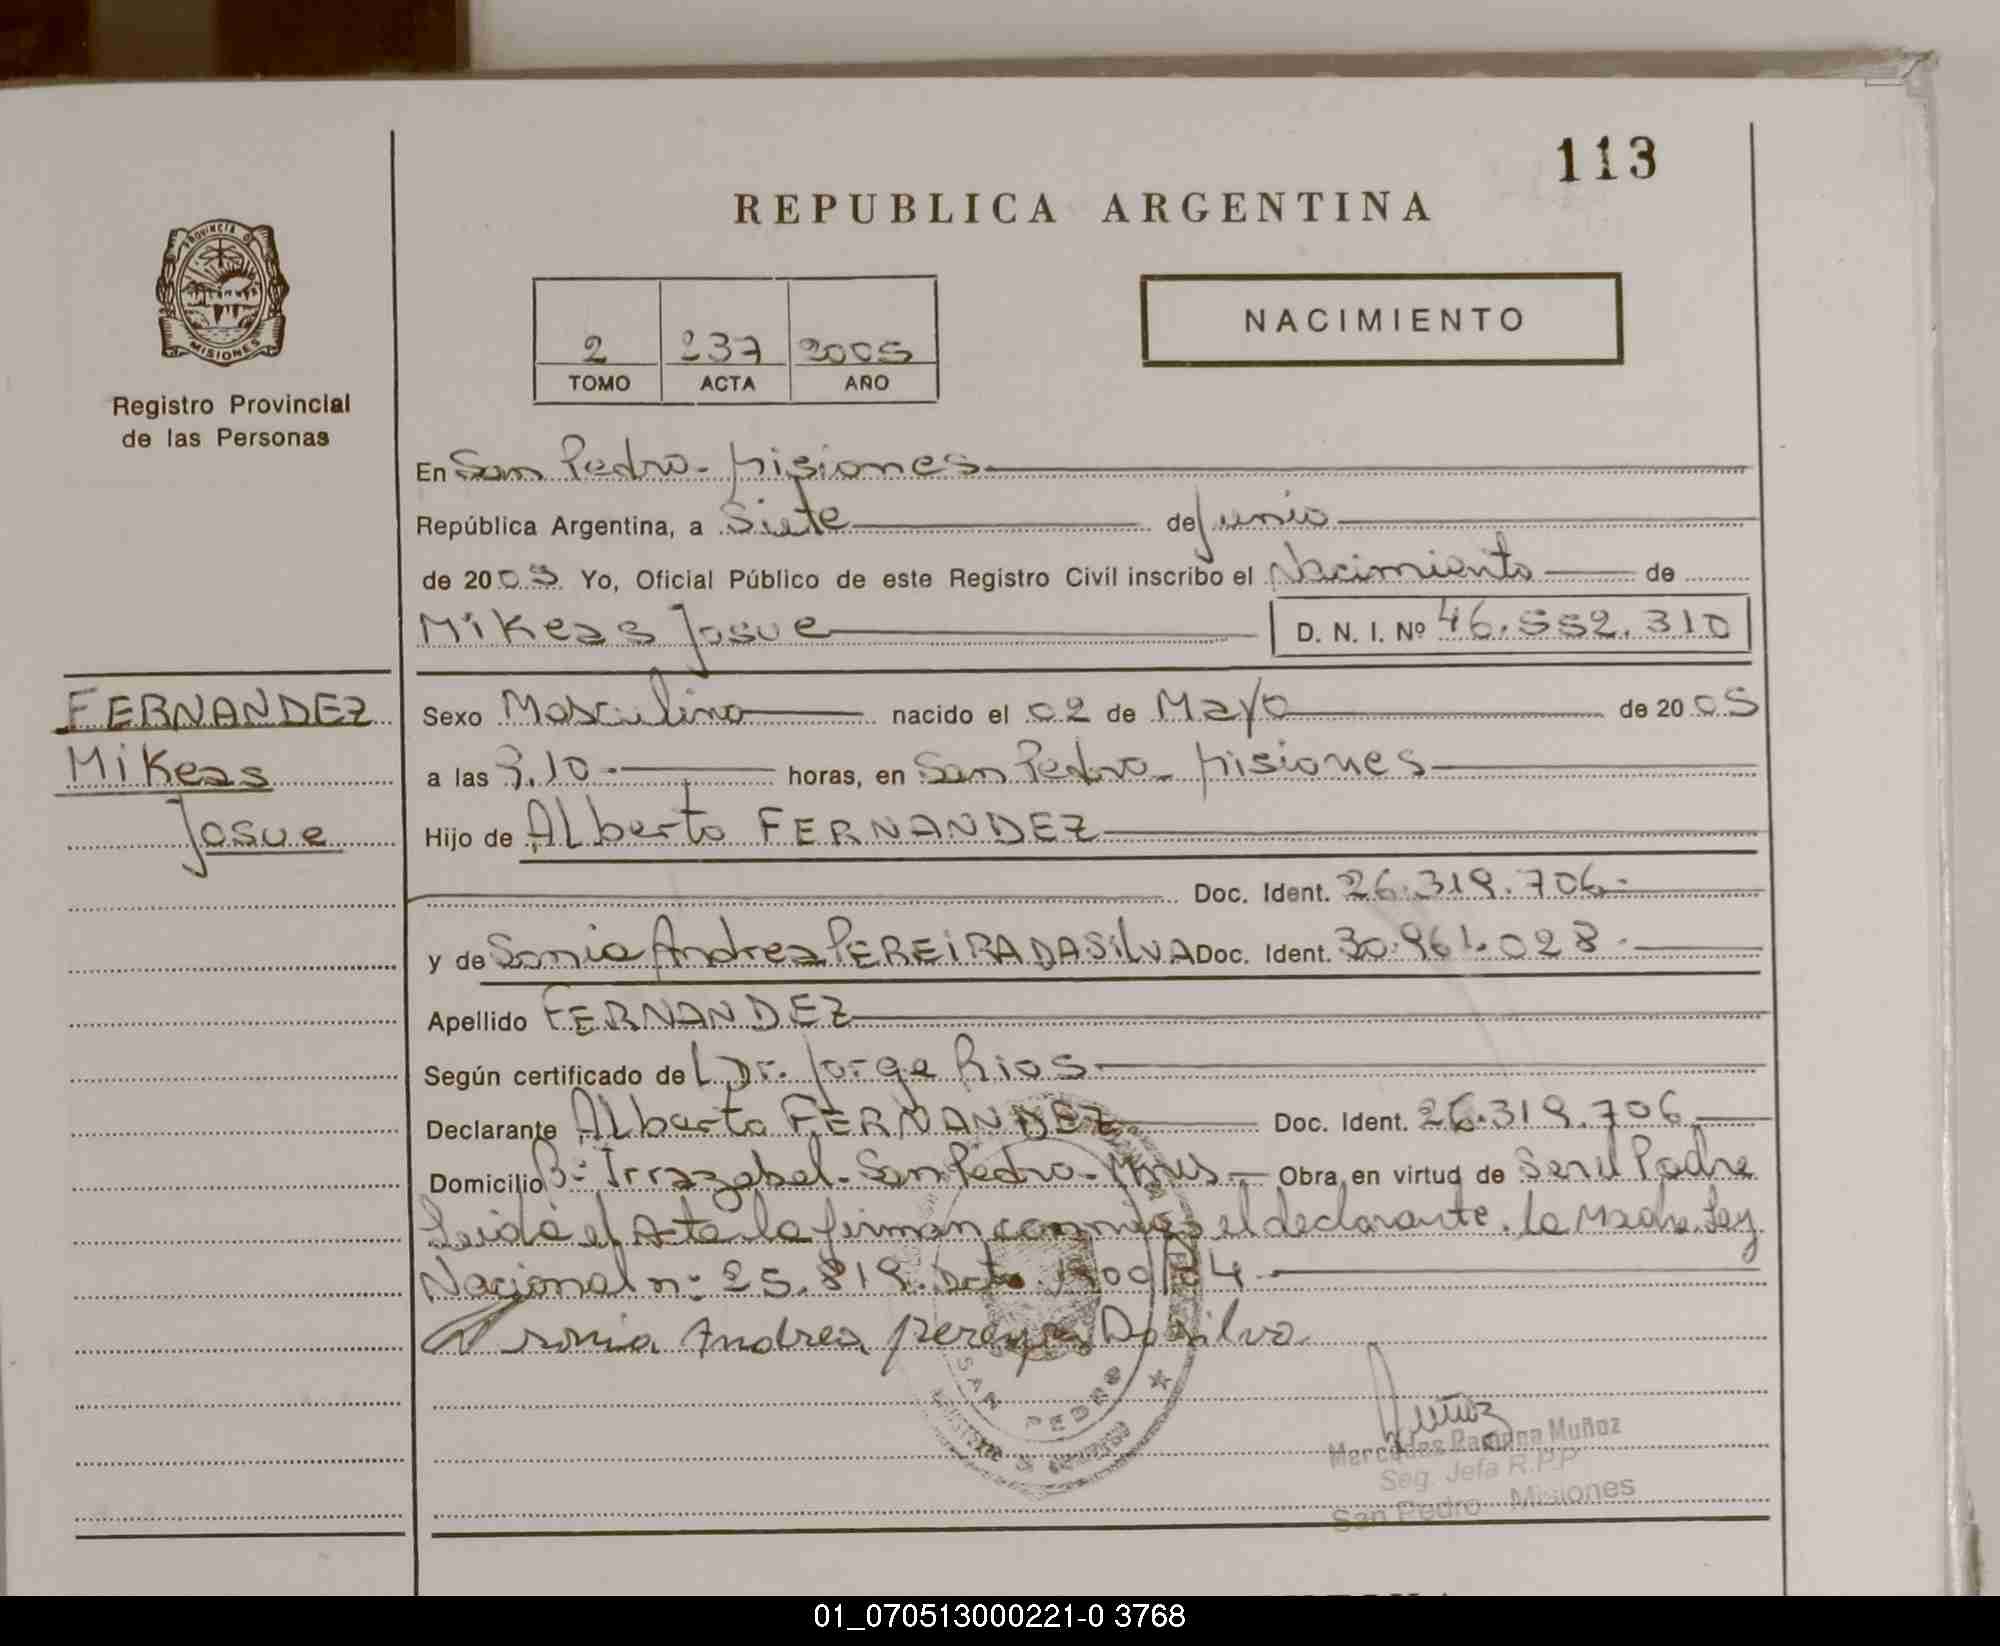 113
REPUBLICA ARGENTINA
PROVINCIA D
MISIONES
Registro Provincial
de las Personas
2 237 2005
TOMO ACTA AÑO
NACIMIENTO
En San Pedro - Misiones
República Argentina, a Siete de Junio
de 2005 Yo, Oficial Público de este Registro Civil inscribo el Nacimiento de
Mikeas Josue D. N. I. Nº 46.552.310
FERNANDEZ
Mikeas
Josue
Sexo Masculino nacido el 02 de Mayo de 2005
a las 3.10 horas, en San Pedro - Misiones
Hijo de Alberto FERNANDEZ
Doc. Ident. 26.319.706.
y de Sonia Andrea PEREiRA DA SiLVA Doc. Ident. 30.961.028.
Apellido FERNANDEZ
Según certificado del Dr. Jorge Rios
Declarante Alberto FERNANDEZ Doc. Ident. 26.319.706
Domicilio B: Irrazabal - San Pedro - Mnes - Obra en virtud de Ser el Padre
Leida el Acta la firman conmigo el declarante. la Madre. Ley
Nacional n: 25.819. Dcto. 1900/04.
Sonia Andrea pereyra Da silva
SAN PEDRO
Muñoz
Mercedes Ramona Muñoz
Seg. Jefa R.P.P
San Pedro - Misiones
01_070513000221-0 3768